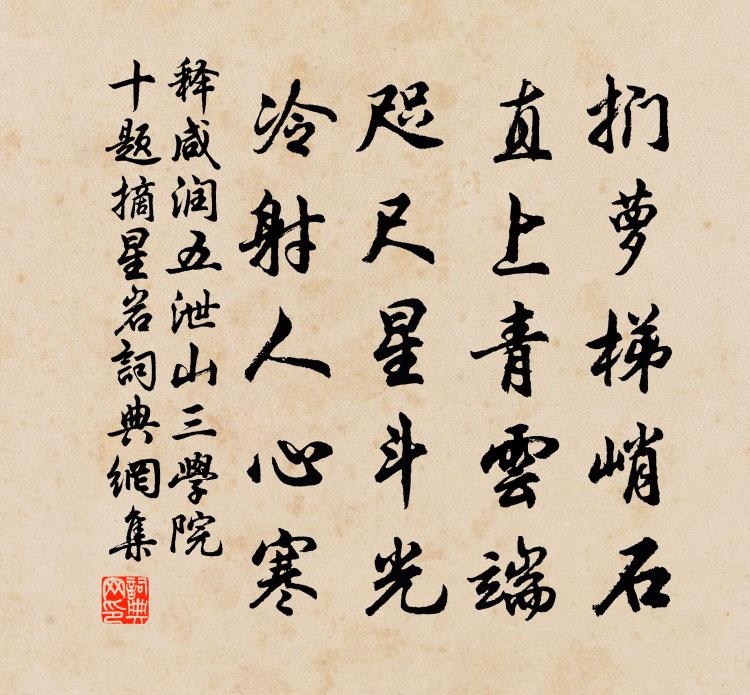 捫萝梯峭石
直上青雲端
咫尺星斗光
冷射人心寒
释咸润五泄山三學院
十题摘星岩詞典網集